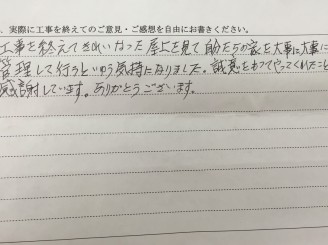 、実際に工事を終えてのご意見・ご感想を自由にお書きください。
工事を終えてきれいになった屋上を見て自分たちの家を大事に大事に
管理して行こうという気持になりました。誠意をもってやってくれたこと
感謝しています。ありがとうございます。